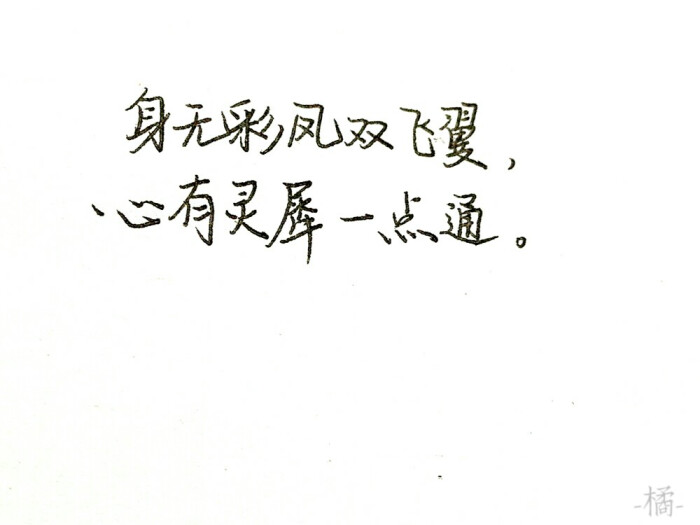 身无彩凤双飞翼，
心有灵犀一点通。
-橘-